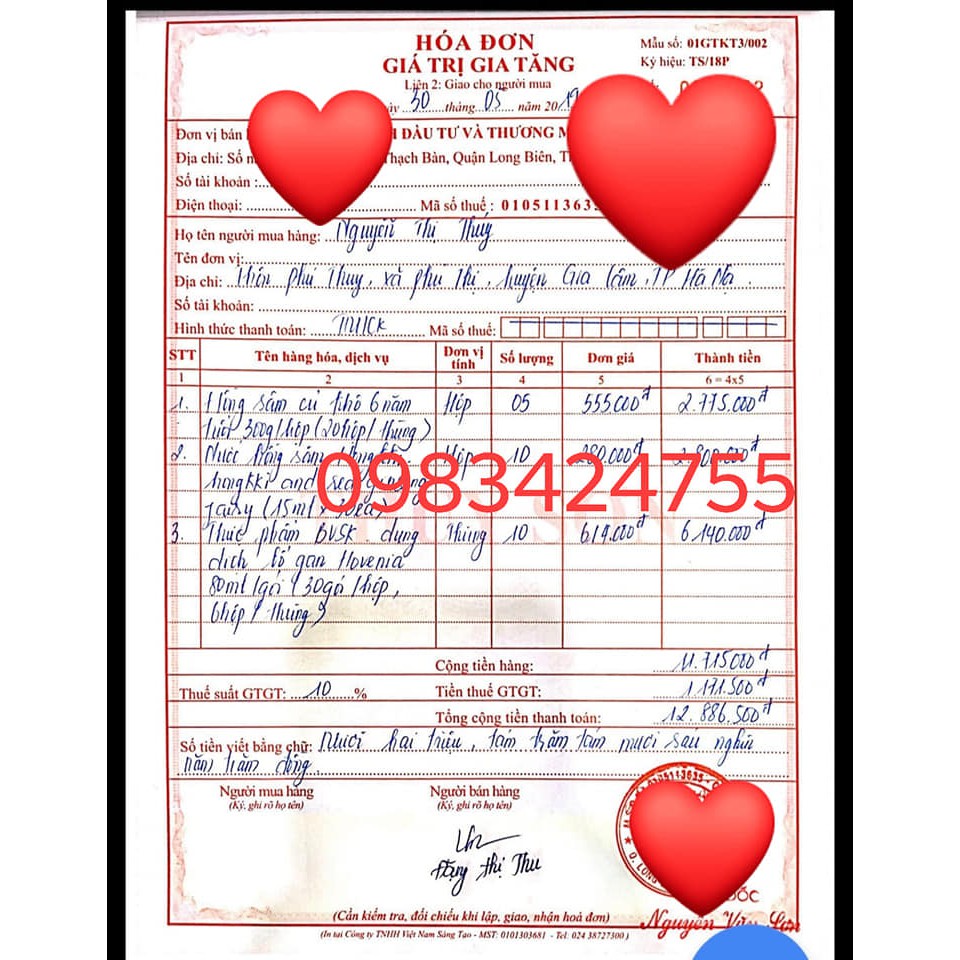 HÓA ĐƠN
GIÁ TRỊ GIA TĂNG
Mẫu số: 01GTKT3/002
Ký hiệu: TS/18P
Liên 2: Giao cho người mua
30 tháng 05 năm 2019
Đơn vị bán ĐẦU TƯ VÀ THƯƠNG
Địa chỉ: Số Thạch Bàn, Quận Long Biên,
Số tài khoản:
Điện thoại: Mã số thuế: 0105113635
Họ tên người mua hàng: Nguyễn Thị Thúy
Tên đơn vị:
Địa chỉ: Thôn Phú Thụy, xã Phú Thị, huyện Gia Lâm, TP Hà Nội.
Số tài khoản:
Hình thức thanh toán: TM/CK Mã số thuế:
STT Tên hàng hóa, dịch vụ Đơn vị tính Số lượng Đơn giá Thành tiền
1 2 3 4 5 6 = 4x5
1. Hồng sâm củ khô 6 năm Hộp 05 555.000đ 2.775.000đ
tuổi 300g/hộp (20hộp/thùng)
2. Nước hồng sâm Hộp 10 280.000đ 2.800.000đ
hongkki and
(15ml x 30ea)
0983424755
3. Thực phẩm BVSK dung Thùng 10 614.000đ 6.140.000đ
dịch bổ gan Hovenia
80ml/gói (30gói/hộp,
6hộp/thùng)
Cộng tiền hàng: 11.715.000đ
Thuế suất GTGT: 10 % Tiền thuế GTGT: 1.171.500đ
Tổng cộng tiền thanh toán: 12.886.500đ
Số tiền viết bằng chữ: Mười hai triệu, tám trăm tám mươi sáu nghìn
năm trăm đồng.
Người mua hàng Người bán hàng
(Ký, ghi rõ họ tên) (Ký, ghi rõ họ tên)
0105113635
Q. LONG
ĐỐC
Đặng Thị Thu
Nguyễn Văn Sơn
(Cần kiểm tra, đối chiếu khi lập, giao, nhận hoá đơn)
(In tại Công ty TNHH Việt Nam Sáng Tạo - MST: 0101303681 - Tel: 024 38727300)